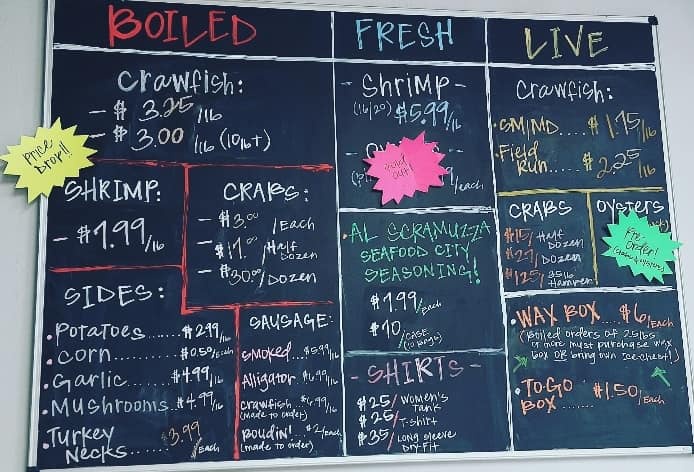 BOILED
Crawfish:
- $ 3.25 /lb
- $ 3.00 /lb (10lb+)
Price Drop!!
SHRIMP:
- $7.99/lb
CRABS:
- $3.00 /Each
- $17.00 /Half Dozen
- $30.00/Dozen
SIDES:
• Potatoes.....$2.99/lb
• Corn.........$0.50/Each
• Garlic......$4.99/lb
• Mushrooms..$4.99/lb
• Turkey Necks... $3.99/Each
SAUSAGE:
Smoked....$5.99/lb
Alligator $6.99/lb
Crawfish $6.99/lb
(made to order)
Boudin!..$2/Each
(made to order)
FRESH
- Shrimp -
(16/20) $5.99/lb
Sold Out!
/each
• AL SCRAMUZZA
SEAFOOD CITY
SEASONING!
$1.99/Each
$10/CASE
- SHIRTS -
$25/ Women's Tank
$25/ T-shirt
$35/ Long Sleeve Dry Fit
LIVE
Crawfish:
• SM/MD.... $1.75/lb
• Field Run.... $2.25/lb
CRABS
$15/ Half Dozen
$27/ Dozen
$125/ Hamper
OYSTERS
Pre-Order!
• WAX BOX ... $6/Each
(Boiled orders of 25lbs
or more must purchase wax
box OR bring own ice-chest!)
• TO-GO BOX...... $1.50/Each